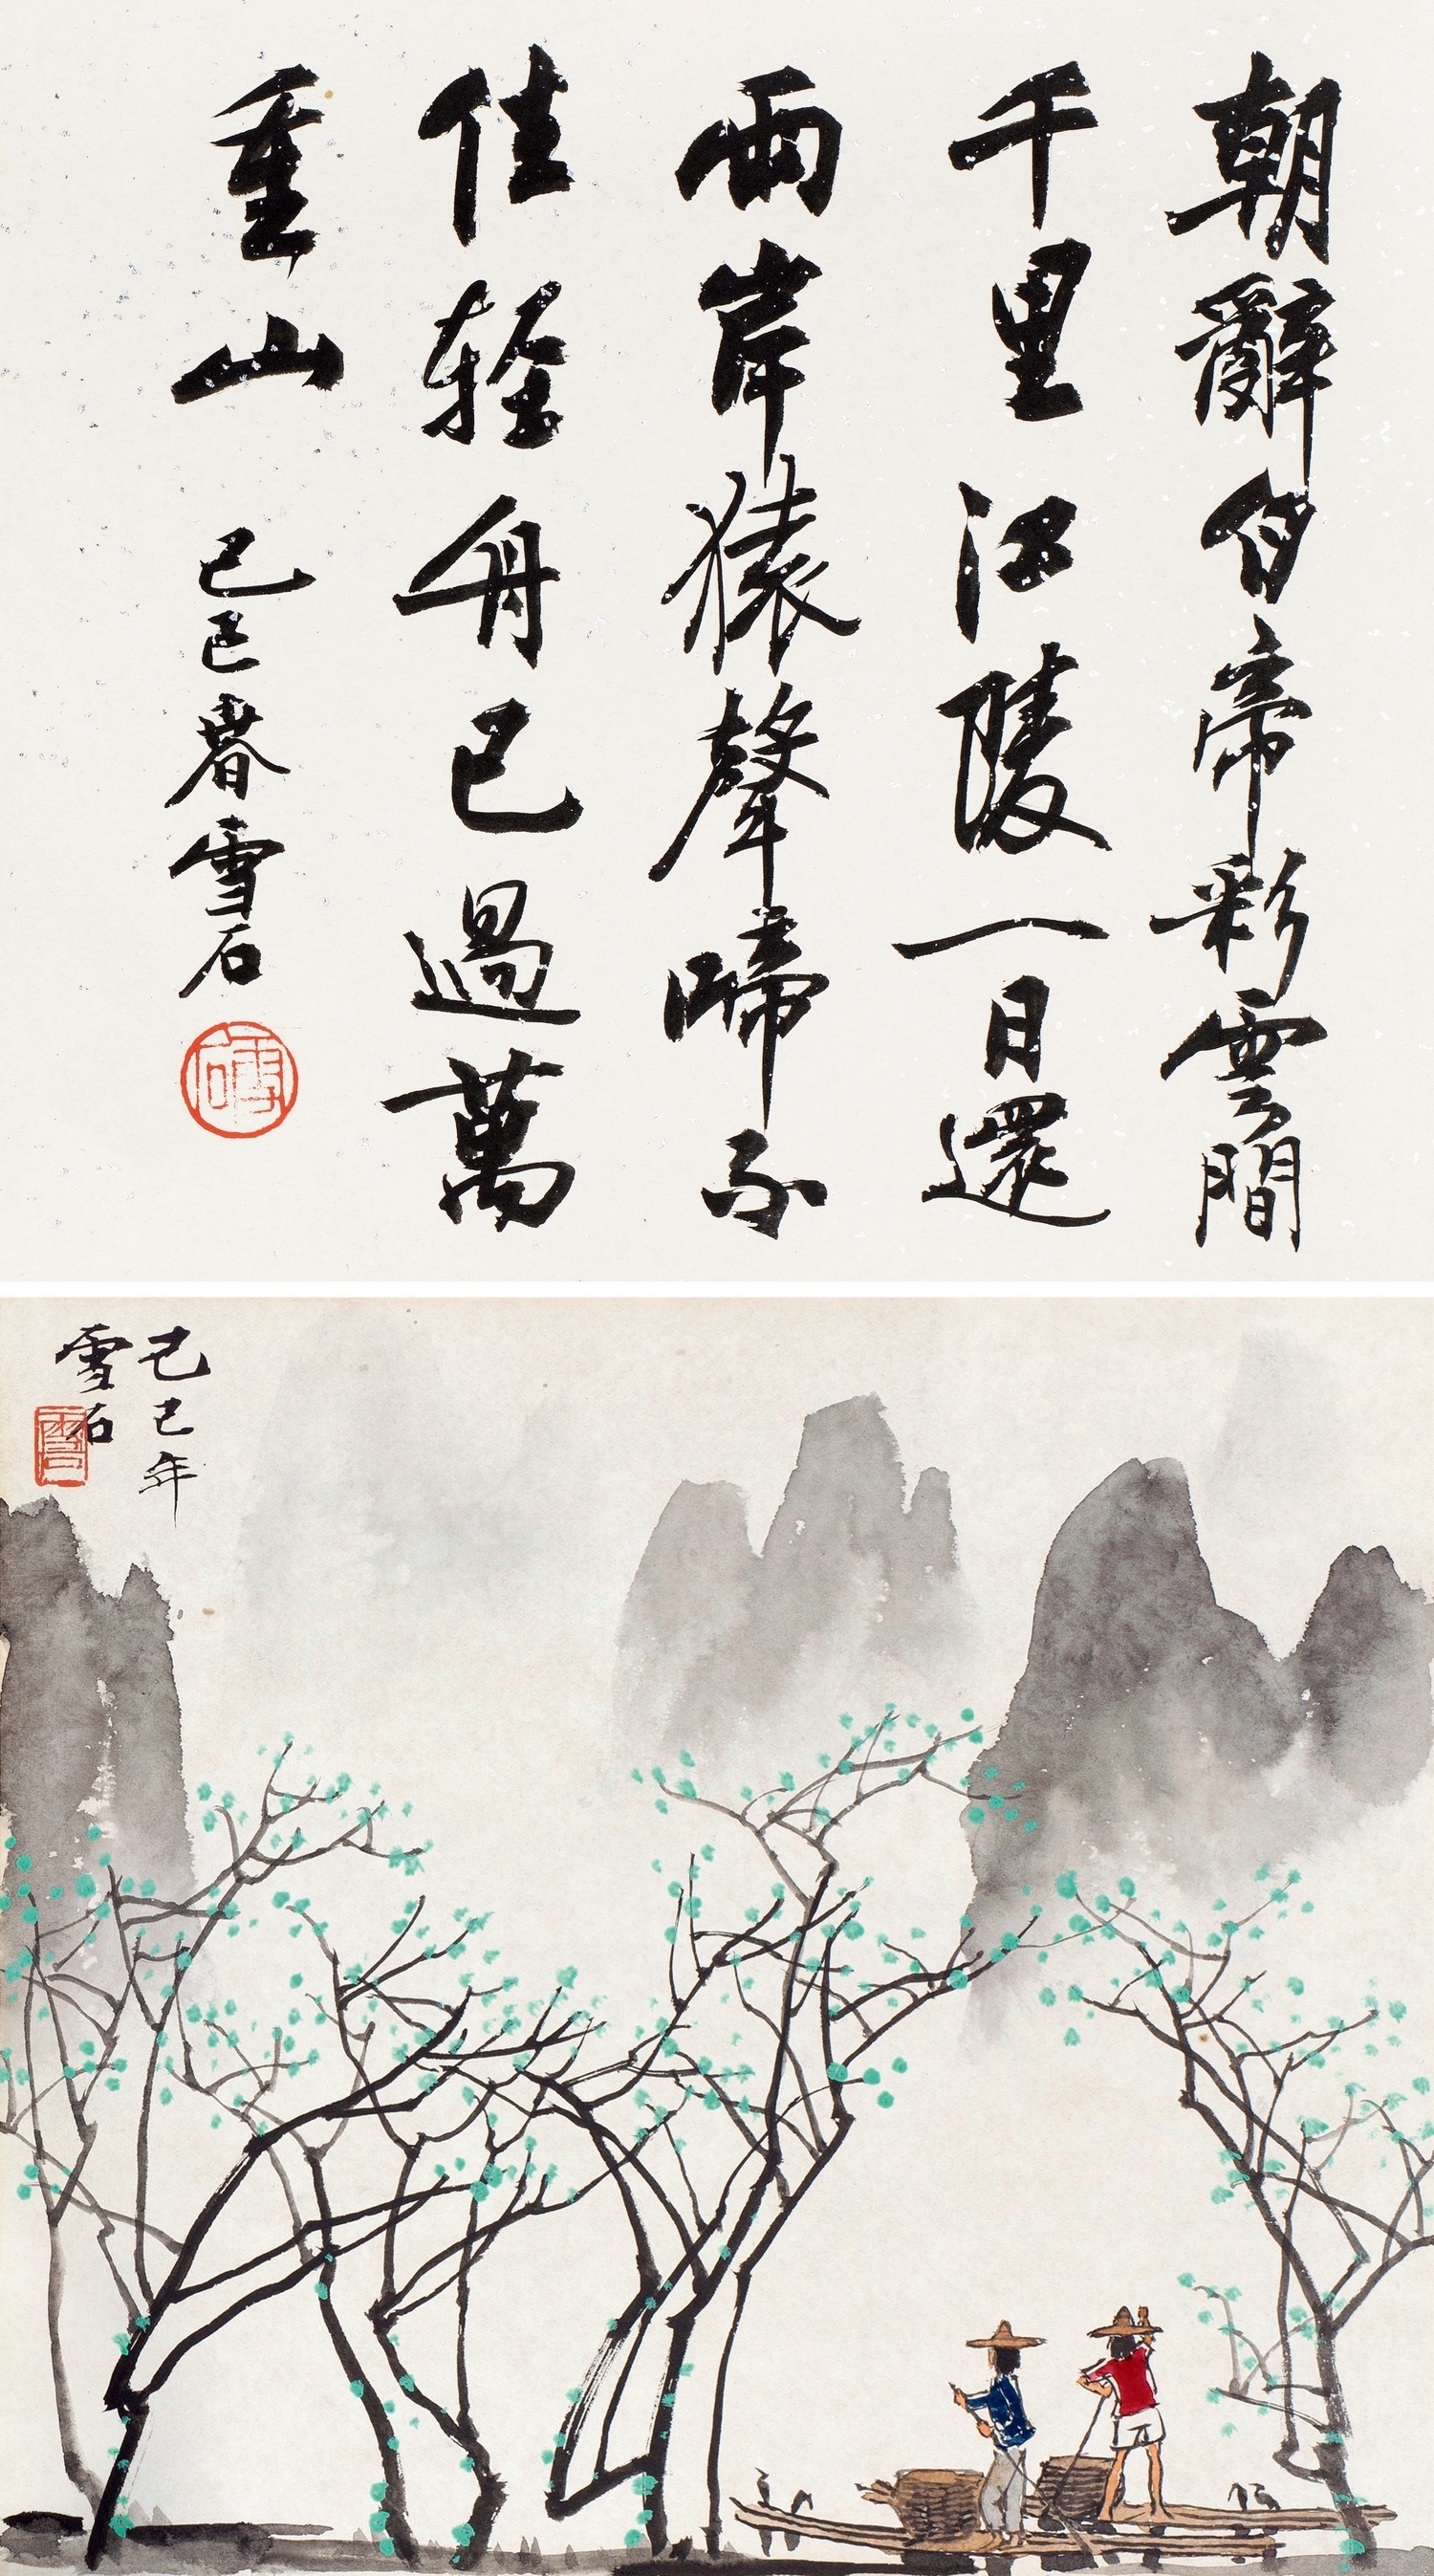 朝辭白帝彩雲間
千里江陵一日還
兩岸猿聲啼不
住輕舟已過萬
重山
己巳春雪石
雪石
己巳年
雪石
雪石